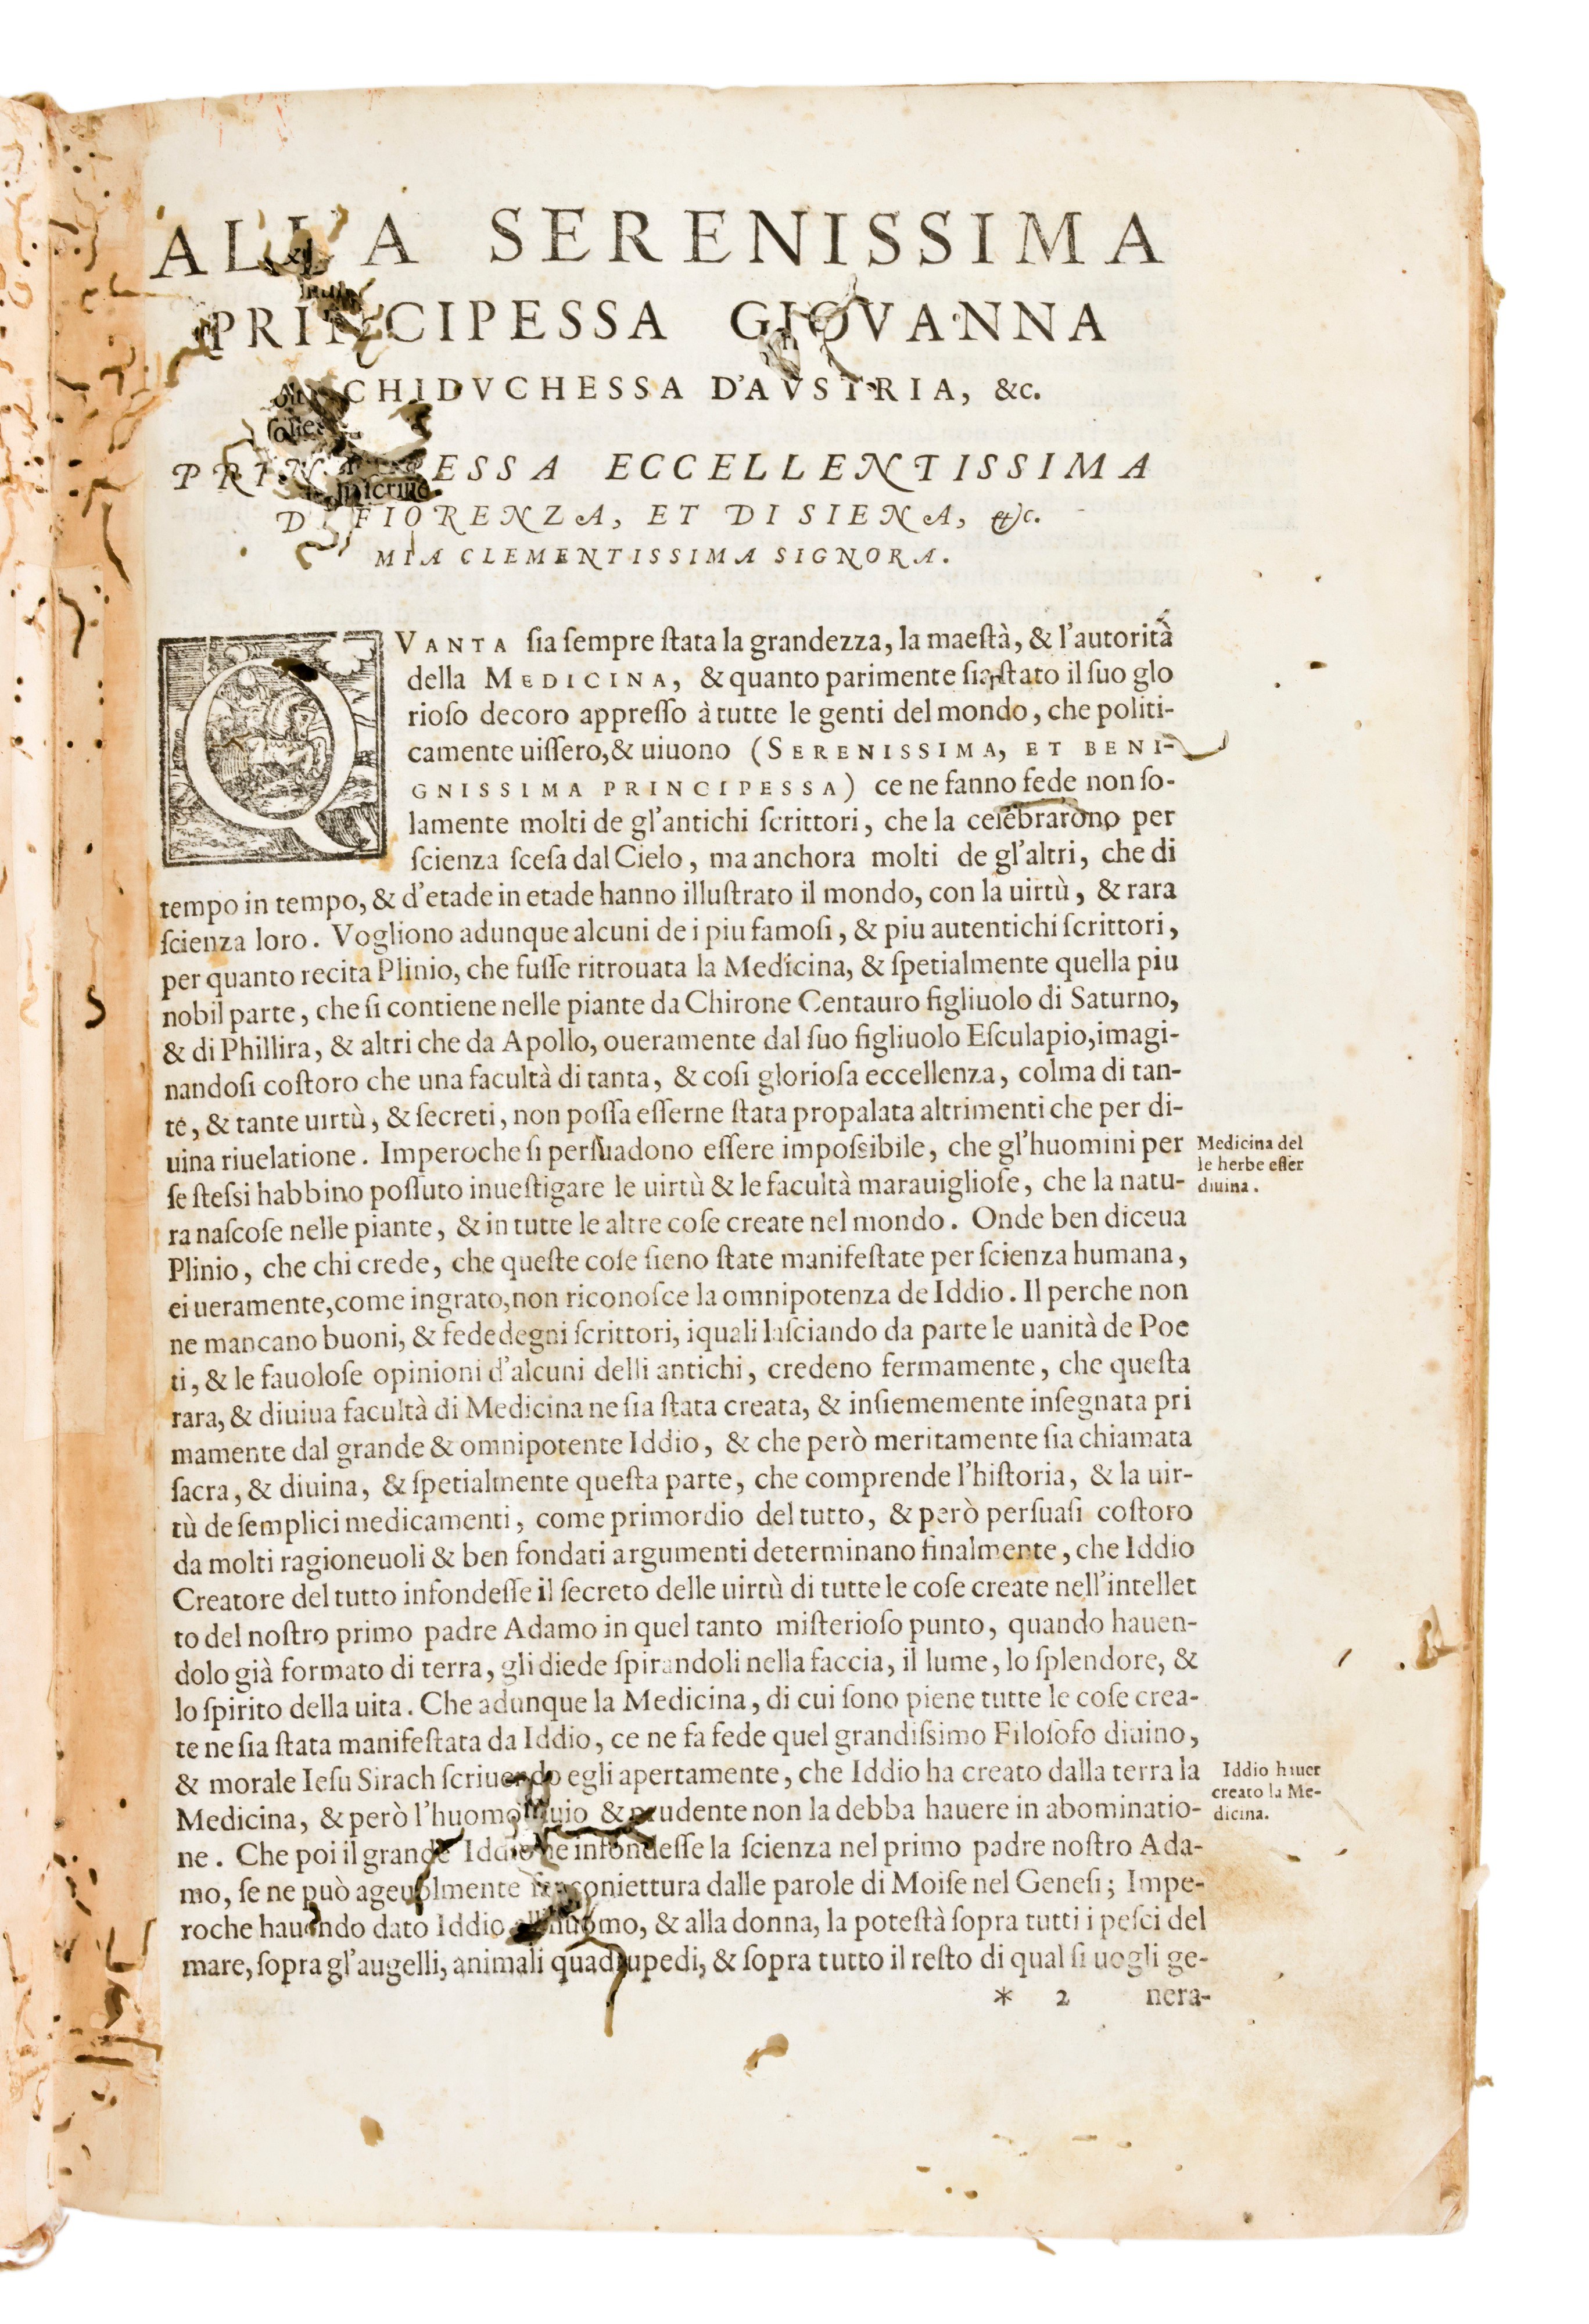 ALLA SERENISSIMA
PRINCIPESSA GIOVANNA
ARCHIDVCHESSA D'AVSTRIA, &c.
PRINCIPESSA ECCELLENTISSIMA
DI FIORENZA, ET DI SIENA, &c.
MIA CLEMENTISSIMA SIGNORA.
QVANTA ſia ſempre ſtata la grandezza, la maeſtà, & l'autorità
della MEDICINA, & quanto parimente ſia ſtato il ſuo glo
rioſo decoro appreſſo à tutte le genti del mondo, che politi-
camente uiſſero, & uiuono (SERENISSIMA, ET BENI-
GNISSIMA PRINCIPESSA) ce ne fanno fede non ſo-
lamente molti de gl'antichi ſcrittori, che la celebrarono per
ſcienza ſceſa dal Cielo, ma anchora molti de gl'altri, che di
tempo in tempo, & d'etade in etade hanno illuſtrato il mondo, con la uirtù, & rara
ſcienza loro. Vogliono adunque alcuni de i piu famoſi, & piu autentichi ſcrittori,
per quanto recita Plinio, che fuſſe ritrouata la Medicina, & ſpetialmente quella piu
nobil parte, che ſi contiene nelle piante da Chirone Centauro figliuolo di Saturno,
& di Phillira, & altri che da Apollo, oueramente dal ſuo figliuolo Eſculapio, imagi-
nandoſi coſtoro che una facultà di tanta, & coſi glorioſa eccellenza, colma di tan-
te, & tante uirtù, & ſecreti, non poſſa eſſerne ſtata propalata altrimenti che per di-
uina riuelatione. Imperoche ſi perſuadono eſſere impoſsibile, che gl'huomini per
ſe ſteſsi habbino poſſuto inueſtigare le uirtù & le facultà marauiglioſe, che la natu-
ra naſcoſe nelle piante, & in tutte le altre coſe create nel mondo. Onde ben diceua
Plinio, che chi crede, che queſte coſe ſieno ſtate manifeſtate per ſcienza humana,
ei ueramente, come ingrato, non riconoſce la omnipotenza de Iddio. Il perche non
ne mancano buoni, & fededegni ſcrittori, iquali laſciando da parte le uanità de Poe
ti, & le fauoloſe opinioni d'alcuni delli antichi, credeno fermamente, che queſta
rara, & diuiua facultà di Medicina ne ſia ſtata creata, & inſiememente inſegnata pri
mamente dal grande & omnipotente Iddio, & che però meritamente ſia chiamata
ſacra, & diuina, & ſpetialmente queſta parte, che comprende l'hiſtoria, & la uir-
tù de ſemplici medicamenti, come primordio del tutto, & però perſuaſi coſtoro
da molti ragioneuoli & ben fondati argumenti determinano finalmente, che Iddio
Creatore del tutto infondeſſe il ſecreto delle uirtù di tutte le coſe create nell'intellet
to del noſtro primo padre Adamo in quel tanto miſterioſo punto, quando hauen-
dolo già formato di terra, gli diede ſpirandoli nella faccia, il lume, lo ſplendore, &
lo ſpirito della uita. Che adunque la Medicina, di cui ſono piene tutte le coſe crea-
te ne ſia ſtata manifeſtata da Iddio, ce ne fa fede quel grandiſsimo Filoſofo diuino,
& morale Ieſu Sirach ſcriuendo egli apertamente, che Iddio ha creato dalla terra la
Medicina, & però l'huomo & prudente non la debba hauere in abominatio-
ne. Che poi il grande Iddio ne infondeſſe la ſcienza nel primo padre noſtro Ada-
mo, ſe ne può ageuolmente coniettura dalle parole di Moiſe nel Geneſi; Impe-
roche hauendo dato Iddio all'huomo, & alla donna, la poteſtà ſopra tutti i peſci del
mare, ſopra gl'augelli, animali quadrupedi, & ſopra tutto il reſto di qual ſi uogli ge-
* 2 nera-
Medicina del
le herbe eſſer
diuina.
Iddio hauer
creato la Me-
dicina.